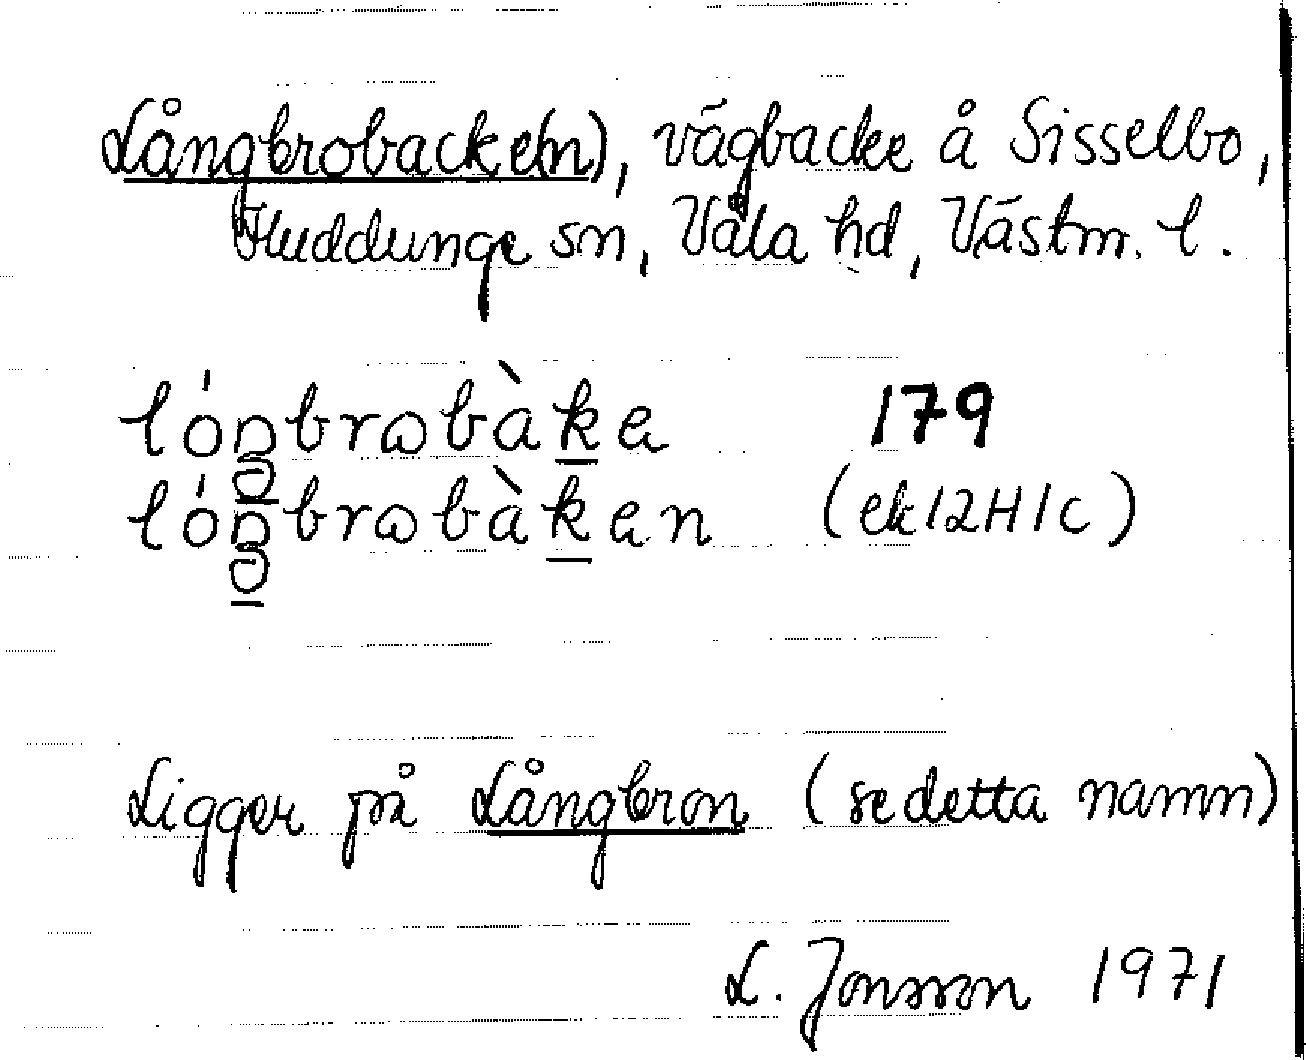 Långbrobacke(n), vägbacke å Sisselbo,
Huddunge sn, Våla hd, Västm. l.
lóŋbrωbàka 179
lóŋbrωbàkan (ek 12H1c)
Ligger på Långbron (se detta namn)
L. Jonsson 1971